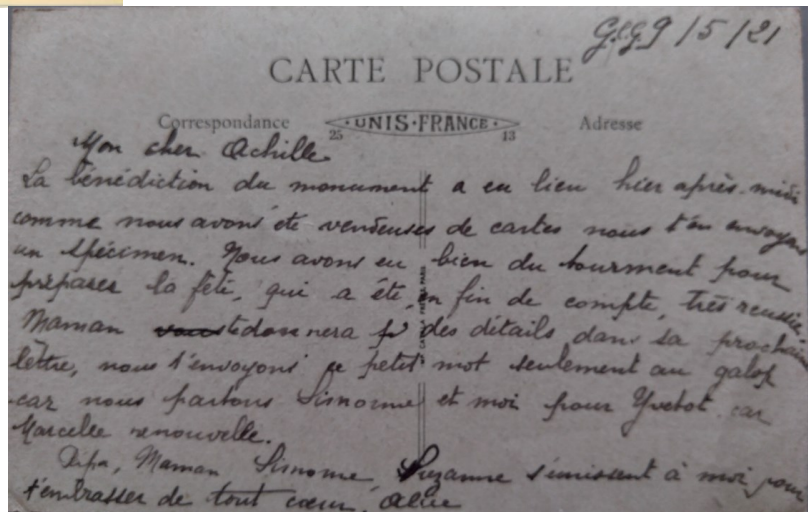 9/5/21
CARTE POSTALE
Correspondance
UNIS-FRANCE
Adresse
25
13
Mon cher Achille
La bénédiction du monument a eu lieu hier après-midi
comme nous avons été vendeuses de cartes nous t'en envoyons
un spécimen. Nous avons eu bien du tourment pour
préparer la fête, qui a été, en fin de compte, très réussie.
Maman te donnera des détails dans sa prochaine
lettre, nous t'envoyons ce petit mot seulement au galop
car nous partons et moi pour Yvetot car
Marcelle renouvelle.
Maman Suzanne s'unissent à moi pour
t'embrasser de tout cœur,